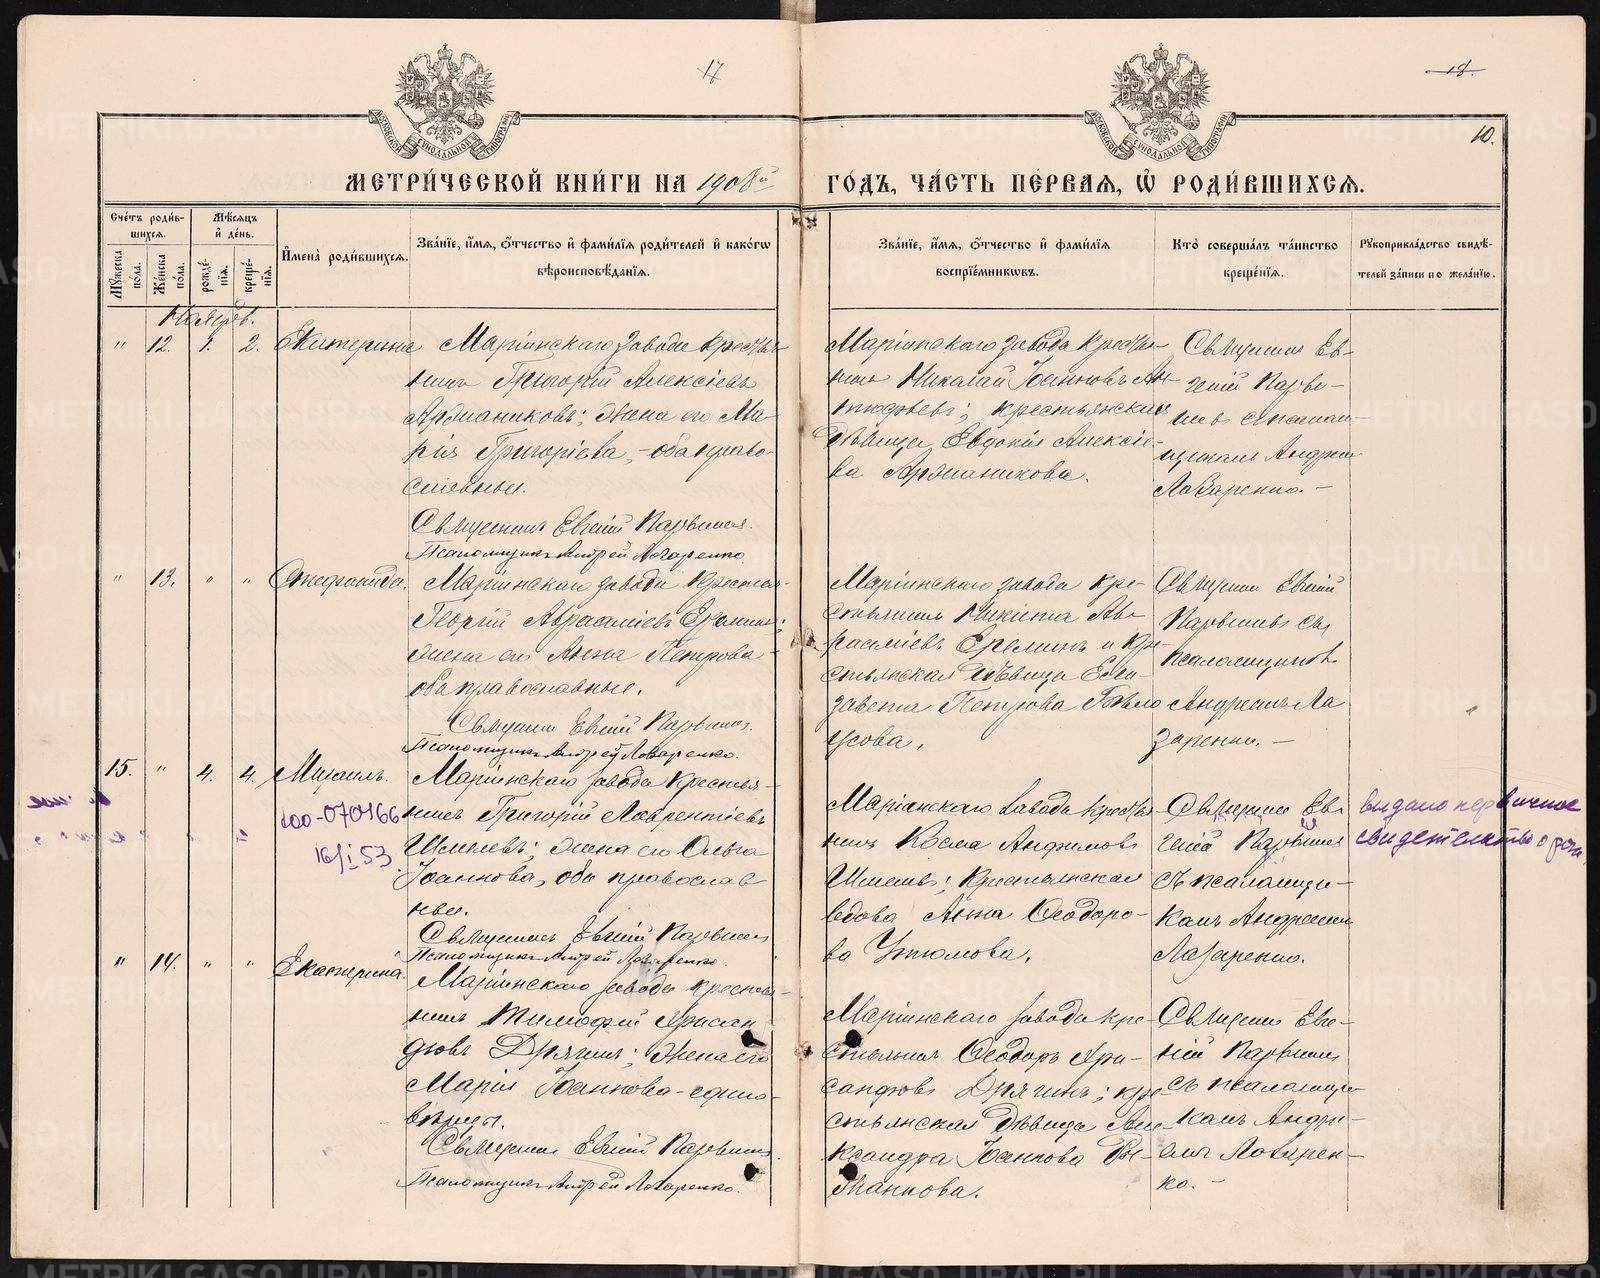 17
18.
10.
МОСКОВСКОЙ СѴНОДАЛЬНОЙ ТИПОГРАФІИ
МОСКОВСКОЙ СѴНОДАЛЬНОЙ ТИПОГРАФІИ
МЕТРИ́ЧЕСКОЙ КНИ́ГИ НА 1908й
ГО́ДЪ, ЧА́СТЬ ПЕ́РВАЯ, Ѡ҆ РОДИ́ВШИХСЯ.
Сче́тъ роди́в-
шихся.
Мужеска по́ла.
Же́нска по́ла.
Мѣ́сяцъ
и҆ де́нь.
рожде́нїя.
креще́нїя.
И҆мена̀ роди́вшихся.
Зва́нїе, и҆́мя, ѻ҆́тчество и҆ фами́лїя роди́телей и҆ како́гѡ
вѣроисповѣ́данїя.
Зва́нїе, и҆́мя, ѻ҆́тчество и҆ фами́лїя
воспрїе́мникѡвъ.
Кто̀ соверша́лъ та́инство
креще́нїя.
Рукоприкла́дство свидѣ́-
телей за́писи по жела́нїю.
Ноябрь.
" 12. 1. 2. Екатерина
Маріинскаго завода кресть-
нинъ Григорій Алексіевъ
Аржаниковъ; жена его Ма-
рія Григоріева, - оба право-
славные.
Священникъ Евгеній
Псаломщикъ Андрей Лазаренко.
Маріинскаго завода кресть-
нинъ Николай Іоанновъ Ан-
крестьянская
дѣвица Евдокія Алексіе-
ва Аржаникова.
Священник Ев-
геній
псалом-
щикомъ Андреем
Лазаренко. -
" 13. " " Стефанида.
Маріинскаго завода крестьян-
Георгій Аврааміевъ Еремин;
жена его Анна Петрова -
оба православные.
Священник Евгеній
Псаломщикъ Андрей Лазаренко.
Маріинскаго завода кре-
стьянинъ Никита Ав-
рааміевъ Ереминъ и кре-
стьянская дѣвица Ели-
завета Петрова Бѣло
усова.
Священник Евгеній
псаломщиком
Андреемъ Ла
заренко. -
15. " 4. 4. Михаилъ.
070466
16/I 53.
Маріинскаго завода крестья-
нинъ Григорій Лаврентіевъ
Шмелевъ; жена его Ольга
Іоаннова, оба православ
ные.
Священникъ Евгеній
Псаломщикъ Андрей Лазаренко.
Маріинскаго завода кресть-
нинъ Косма Анфимовъ
Шмелев; крестьянская
вдова Анна Ѳеодоро-
ва Утюмова.
Священник Ев-
геній
съ псаломщи-
комъ Андреемъ
Лазаренко.
выдано первичное
свидетельство о рож.
" 14. " " Екатерина.
Маріинскаго завода крестья-
нинъ Тимофей Хрисан-
фовъ Дрягинъ; жена его
Марія Іоаннова - едино-
вѣрцы.
Священник Евгеній
Псаломщикъ Андрей Лазаренко.
Маріинскаго завода кре-
стьянинъ Ѳеодоръ Хри-
санфовъ Дрягинъ; кре-
стьянская дѣвица Але-
ксандра Іоаннова Ро-
манова.
Священник Евге-
ній
съ псаломщи-
комъ Андре-
емъ Лазарен-
ко. -
METRIKI.GASO-URAL.RU